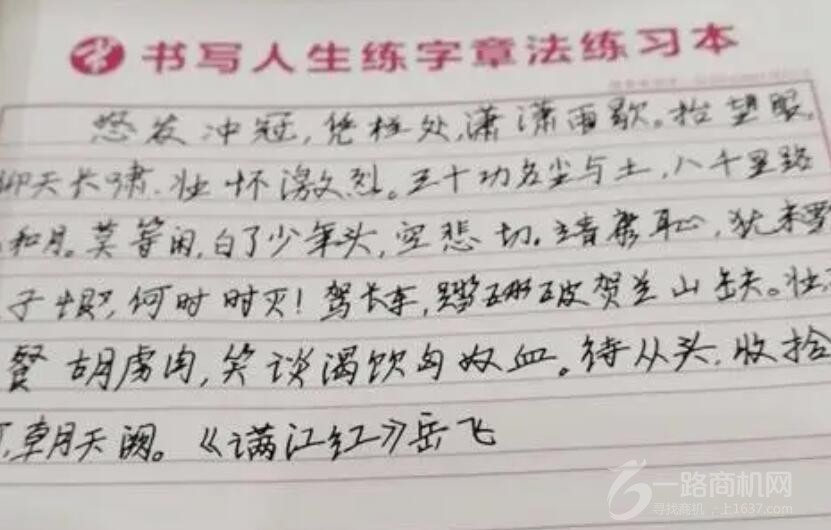 书写人生练字章法练习本
怒发冲冠,凭栏处,潇潇雨歇。抬望眼,
仰天长啸.壮怀激烈。三十功名尘与土,八千里路
和月。莫等闲,白了少年头,空悲切。靖康耻,犹未雪
子恨,何时时灭!驾长车,踏破贺兰山缺。壮
餐胡虏肉,笑谈渴饮匈奴血。待从头.收拾
朝天阙。《满江红》岳飞
一路商机网
寻找商机,上1637.com